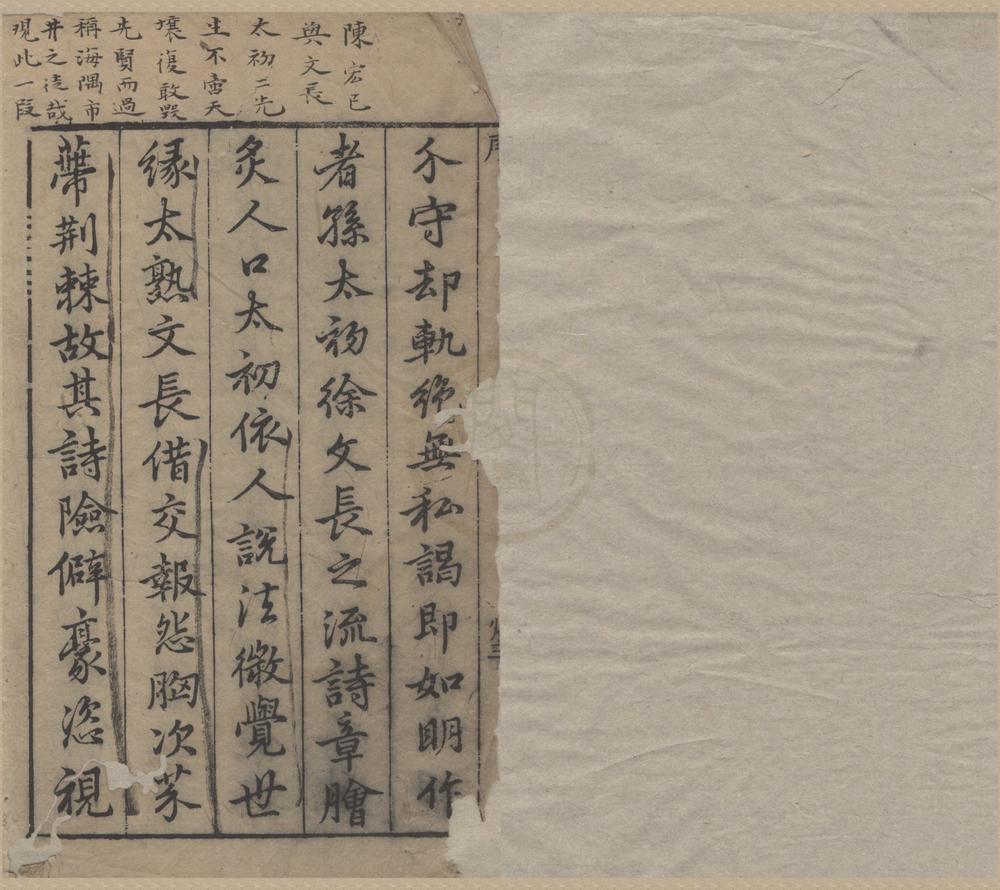 陳宏已
與文長
太初二先
生不啻天
壤復敢毀
先賢而過
稱海隅市
井之徒哉
現此一段
介守却軌絶無私謁即如明作
者孫太初徐文長之流詩章膾
炙人口太初依人說法微覺世
緣太熟文長借交報怨胸次芥
蔕荆棘故其詩險僻豪恣視